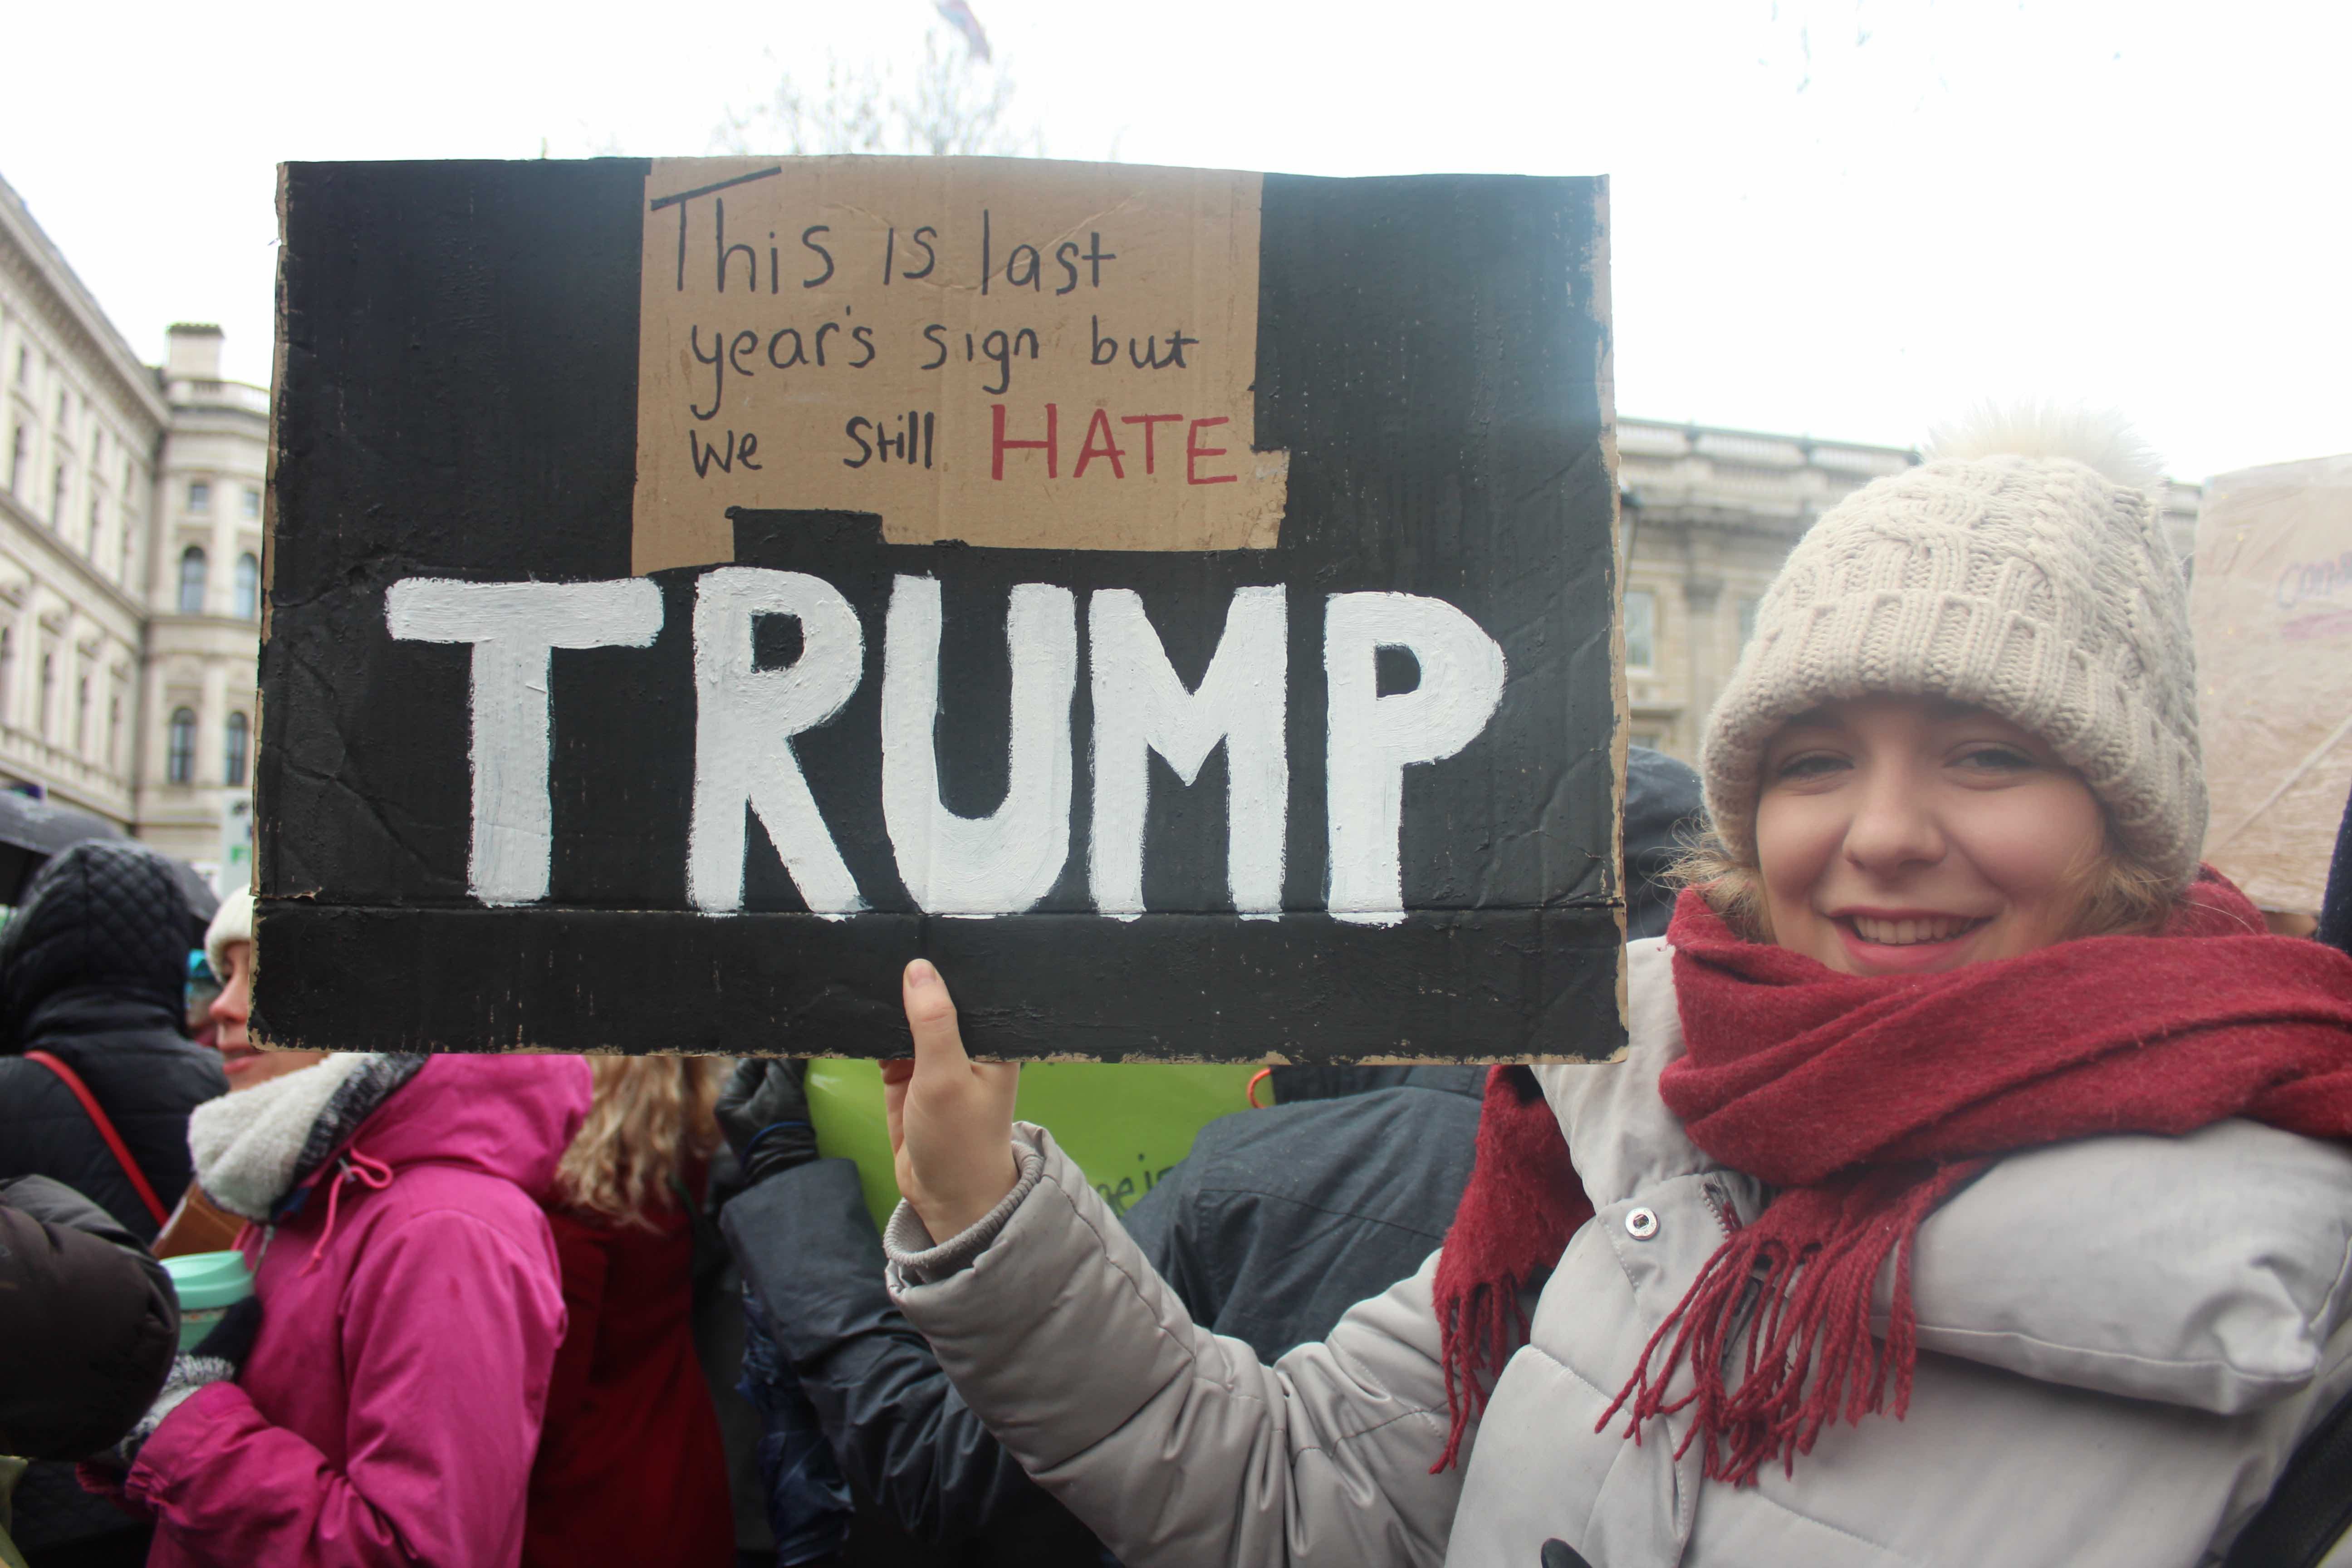 This is last
year's sign but
we still HATE
TRUMP